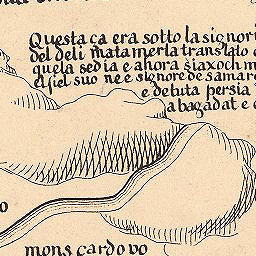 Questa ça era sotto la signori
del deli matamerla translato
quela sedia e ahora siaxoch m
el fiel suo ne e signore de samar
e de tuta persia
abagadat e
o
mons cardovo